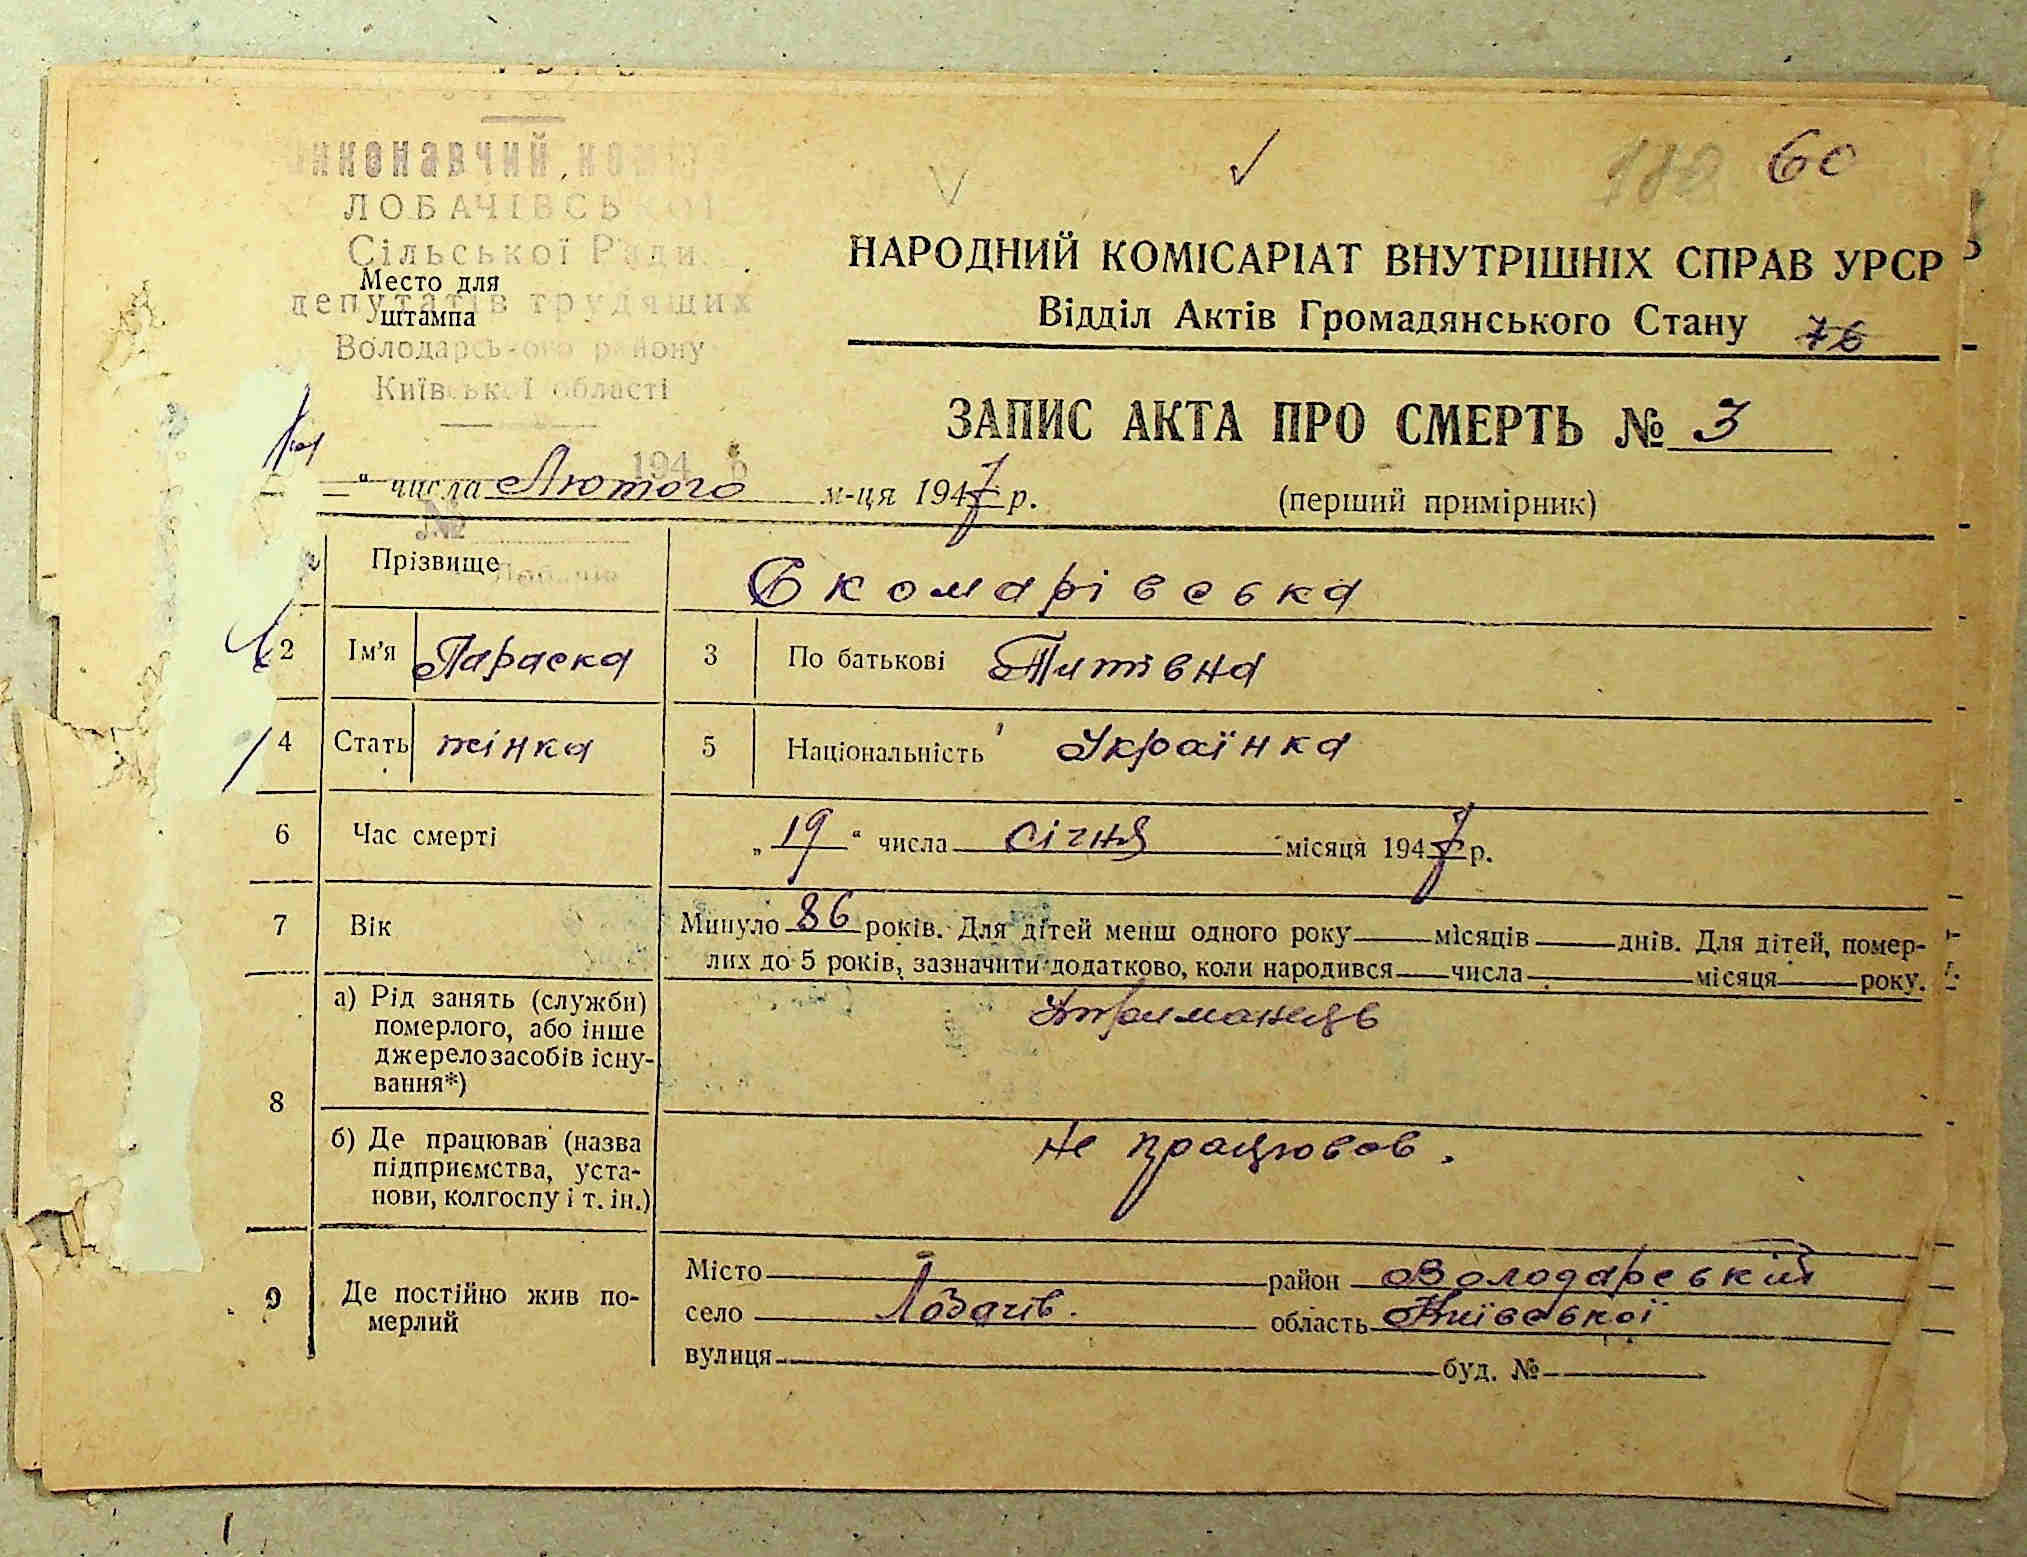 Виконавчий комітет
ЛОБАЧІВСЬКОЇ
Сільської Ради
депутатів трудящих
Володарського району
Київської області
Место для
штампа
194
№
60
НАРОДНИЙ КОМІСАРІАТ ВНУТРІШНІХ СПРАВ УРСР
Відділ Актів Громадянського Стану 76
ЗАПИС АКТА ПРО СМЕРТЬ № 3
“ числа Лютого м-ця 1947 р.
(перший примірник)
Прізвище Скомарівська
2 Ім'я Параска 3 По батькові Титівна
4 Стать жінка 5 Національність Українка
6 Час смерті „19“ числа січня місяця 1947 р.
7 Вік Минуло 86 років. Для дітей менш одного року місяців днів. Для дітей, помер-
лих до 5 років, зазначити додатково, коли народився числа місяця року.
8 а) Рід занять (служби)
померлого, або інше
джерело засобів існу-
вання*)
Утриманець
б) Де працював (назва
підприємства, уста-
нови, колгоспу і т. ін.)
не працював.
9 Де постійно жив по-
мерлий
Місто район Володарський
село Лобачів. область Київської
вулиця буд. №